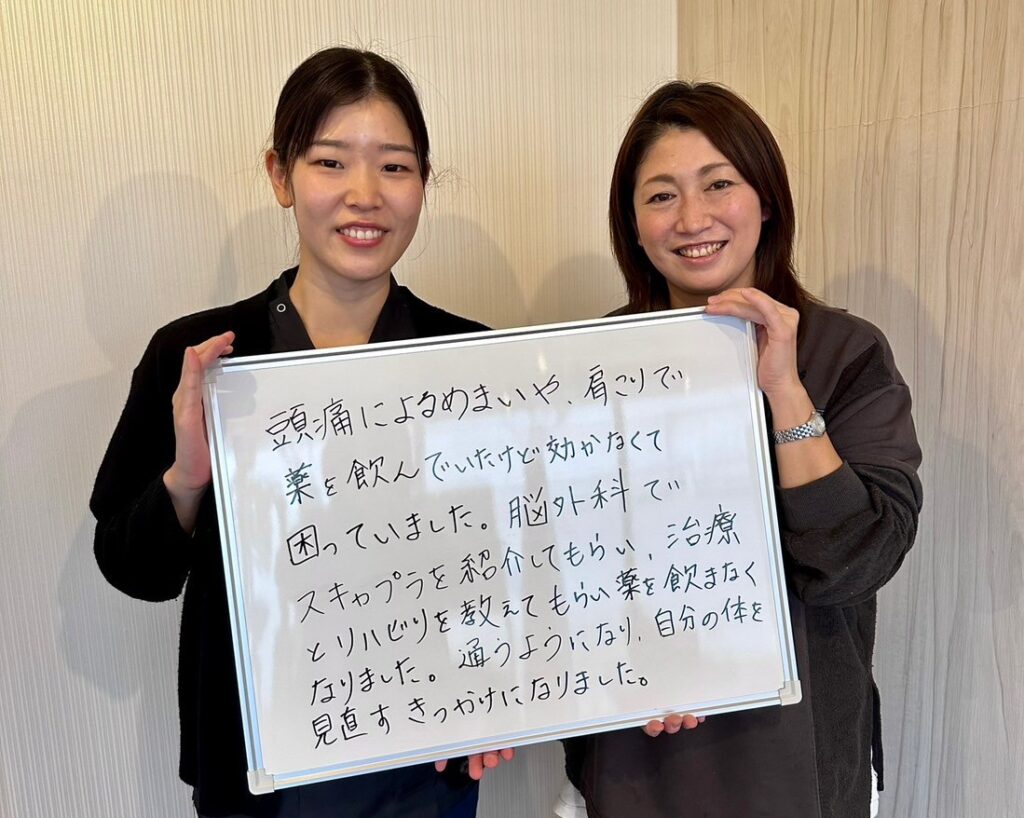 頭痛によるめまいや、肩こりで
薬を飲んでいたけど効かなくて
困っていました。脳外科で
スキャプラを紹介してもらい、治療
とリハビリを教えてもらい薬を飲まなく
なりました。通うようになり、自分の体を
見直すきっかけになりました。